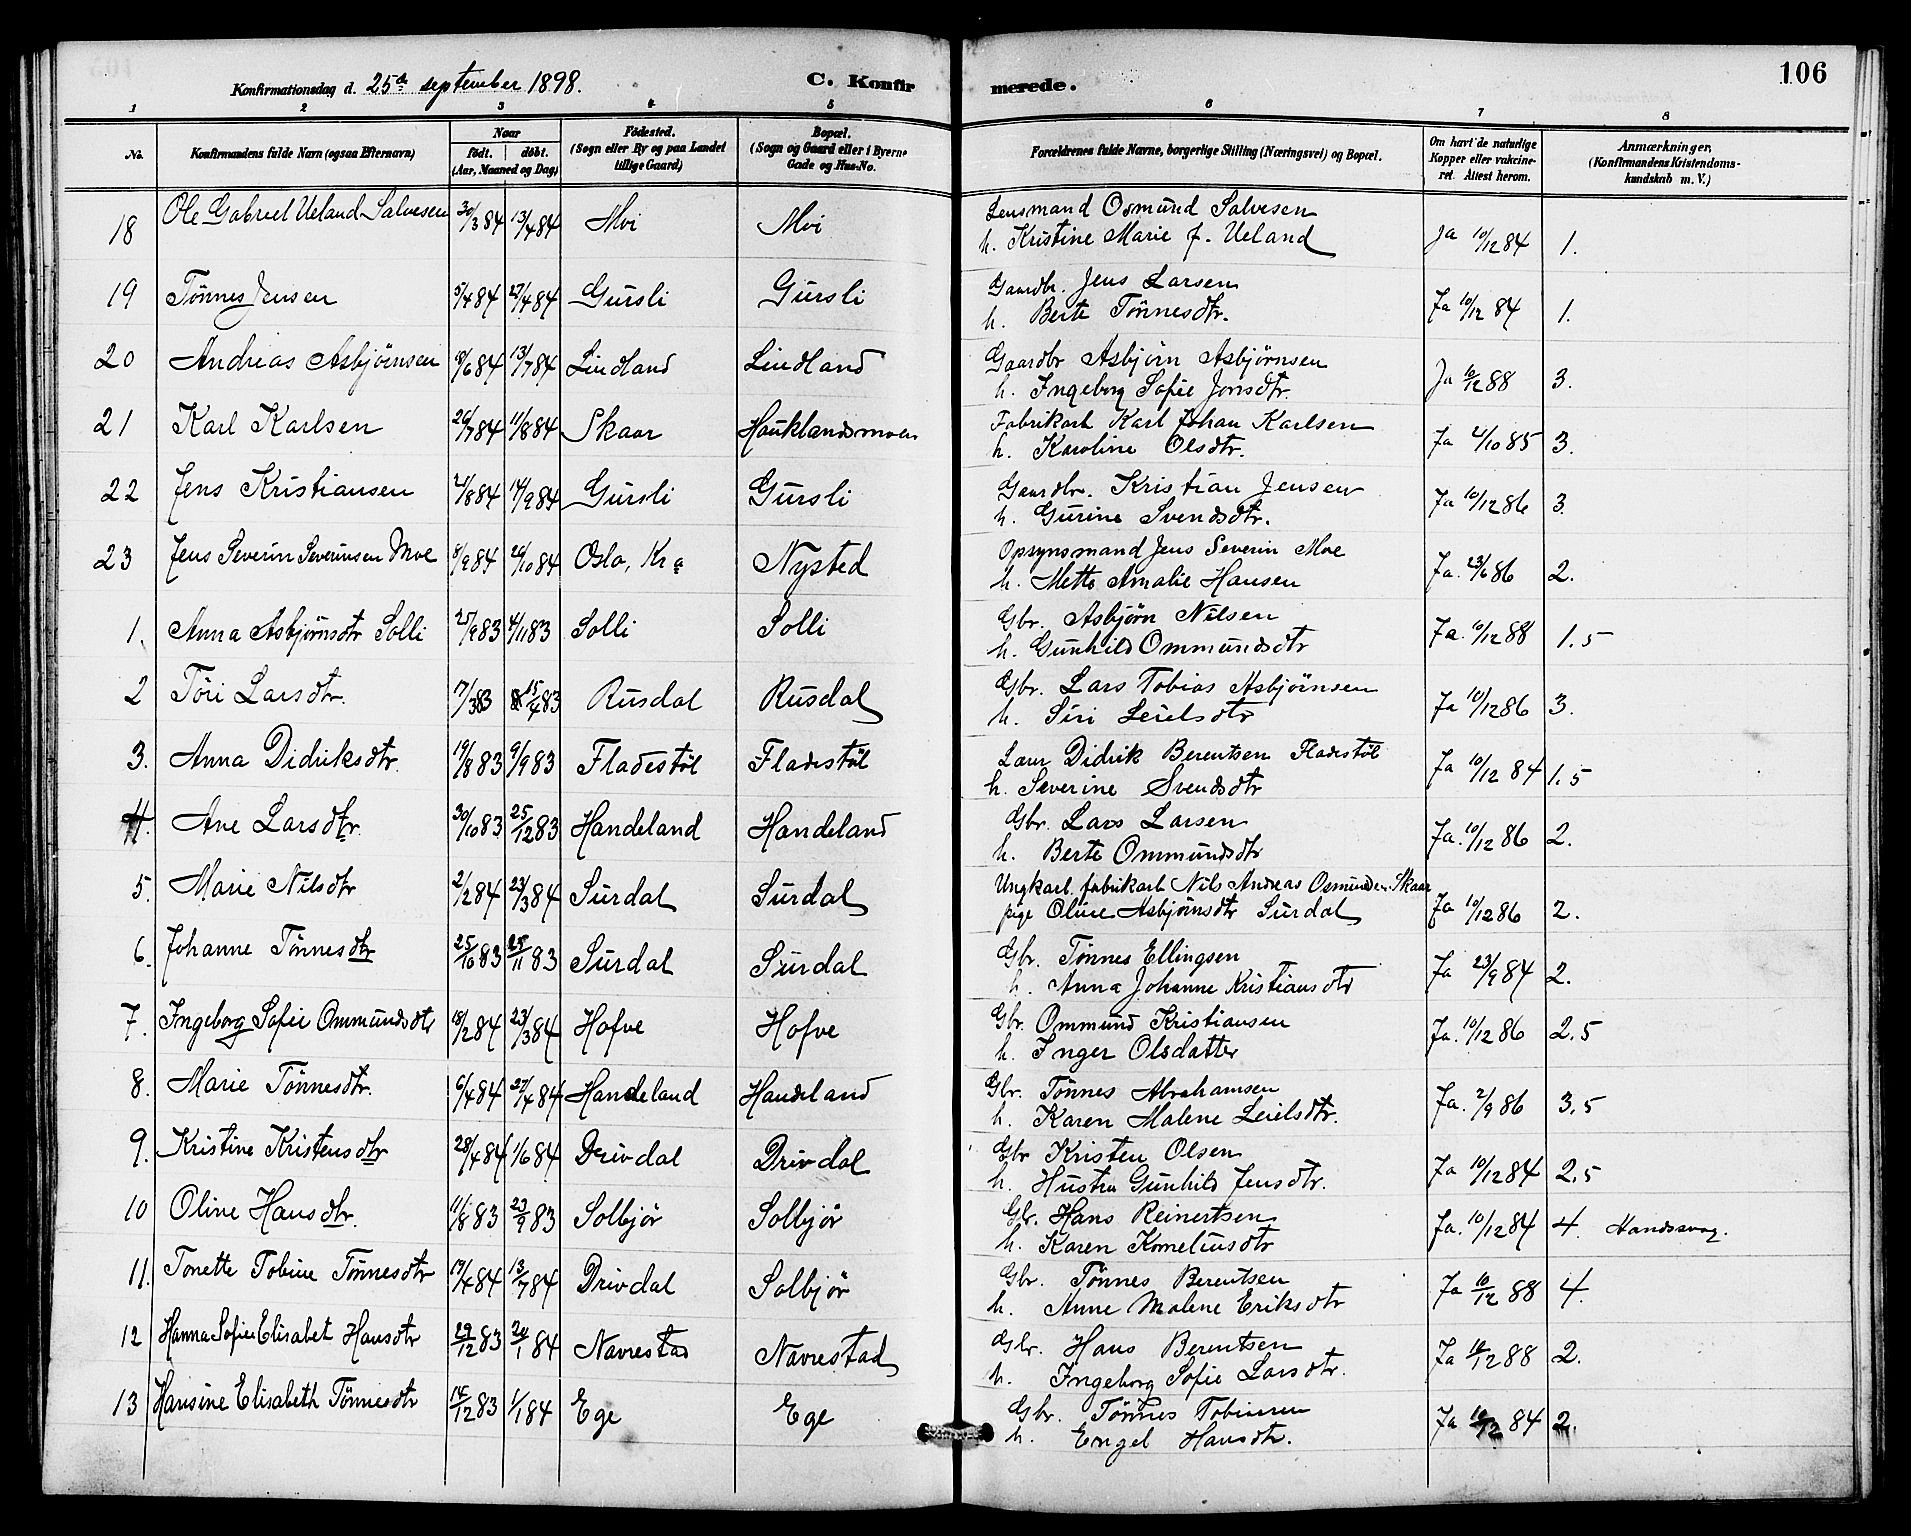 106
Konfirmationsdag d. 25de september 1898. C. Konfirmerede.
1 2 3 4 5 6 7 8
No. Konfirmandens fulde Navn (ogsaa Efternavn) Naar født. døbt. (Aar, Maaned og Dag) Fødested. (Sogn eller By og paa Landet tillige Gaard) Bopæl. (Sogn og Gaard eller i Byerne Gade og Hus-No. Forældrenes fulde Navne, borgerlige Stilling (Næringsvei) og Bopæl. Om havt de naturlige Kopper eller vakcineret. Attest herom. Anmærkninger, (Konfirmandens Kristendomskundskab m. V.)
18 Ole Gabriel Ueland Salvesen 30/3 84 13/4 84 Moi Moi Lensmand Osmund Salvesen
h. Kristine Marie f. Ueland Ja 10/12 84 1.
19 Tønnes Jensen 5/4 84 27/4 84 Gursli Gursli Gaardbr. Jens Larsen
h. Berte Tönnesdtr. Ja 10/12 84 1.
20 Andreas Asbjörnsen 18/6 84 13/7 84 Lindland Lindland Gaardbr Asbjörn Asbjørnsen
h. Ingeborg Sofie Jonsdtr. Ja 10/12 88 3.
21 Karl Karlsen 26/7 84 11/8 84 Skaar Hauklandsmoen Fabrikarb Karl Johan Karlsen
h. Karoline Olsdtr. Ja /10 85 3.
22 Jens Kristiansen 2/8 84 14/9 84 Gursli Gursli Gaardbr. Kristian Jensen
h. Gurine Svendsdtr. Ja 10/12 86 3.
23 Jens Severin Severinsen Moe 8/9 84 26/10 84 Oslo, Kra Nysted Opsynsmand Jens Severin Moe
h. Mette Amalie Hansen Ja. 23/6 86 2.
1. Anna Asbjörnsdtr Solli 25/9 83 4/11 83 Solli Solli Gbr. Asbjørn Nilsen
h. Gunhild Ommundsdtr Ja. 10/12 88 1.5
2 Töri Larsdtr. 17/3 83 15/4 83 Rusdal Rusdal Gbr. Lars Tobias Asbjörnsen
h. Siri Leielsdtr Ja 10/12 86 3.
3. Anna Didriksdtr. 19/8 83 9/9 83 Fladestöl Fladestöl Didrik Berentsen Fladestöl
h. Severine Svendsdtr Ja 10/12 84 1.5
4. Ane Larsdtr. 30/10 83 25/12 83 Handeland Handeland Gbr. Lars Larsen
h. Berte Ommundsdtr Ja. 10/12 86 2.
5. Marie Nilsdtr 2/2 84 23/3 84 Surdal Surdal Ungkarl, fabrikarb Nils Andreas Osmundsen Skaar
pige Oline Asbjörnsdtr Surdal Ja 10/12 86 2.
6. Johanne Tönnesdtr 25/10 83 25/11 83 Surdal Surdal Gbr. Tönnes Ellingsen
h. Anna Johanne Kristiansdtr Ja 23/9 84 2.
7. Ingeborg Sofie Ommundsdtr 18/2 84 23/3 84 Hofve Hofve Gbr. Ommund Kristiansen
h. Inger Olsdatter Ja. 10/12 86 2.5
8. Marie Tönnesdtr. 6/4 84 27/4 84 Handeland Handeland Gbr. Tönnes Abrahamsen
h. Karen Malene Leielsdtr. Ja. 2/9 86 3.5
9. Kristine Kristensdtr 28/4 84 1/6 84 Drivdal Drivdal Gbr Kristen Olsen
h. Hustru Gunhild Jensdtr. Ja 10/12 84 2.5
10 Oline Hansdtr. 11/8 83 23/9 83 Solbjør Solbjør Gbr. Hans Reinertsen
h. Karen Korneliusdtr Ja. 10/12 84 4. Aandssvag.
11. Tonette Tobine Tönnesdtr 19/4 84 13/7 84 Drivdal Solbjør Gbr. Tönnes Berentsen
h. Anne Malene Eriksdtr Ja 10/12 88 4.
12 Hanna Sofie Elisabet Hansdtr 29/12 83 20/1 84 Navrestad Navrestad Gbr. Hans Berentsen
h. Ingeborg Sofie Larsdtr. Ja 10/12 88 2.
13 Hansine Elisabeth Tönnesdtr 14/12 83 1/1 84 Ege Ege Gbr. Tönnes Tobiasen
h. Engel Hansdtr. Ja 10/12 84 2.